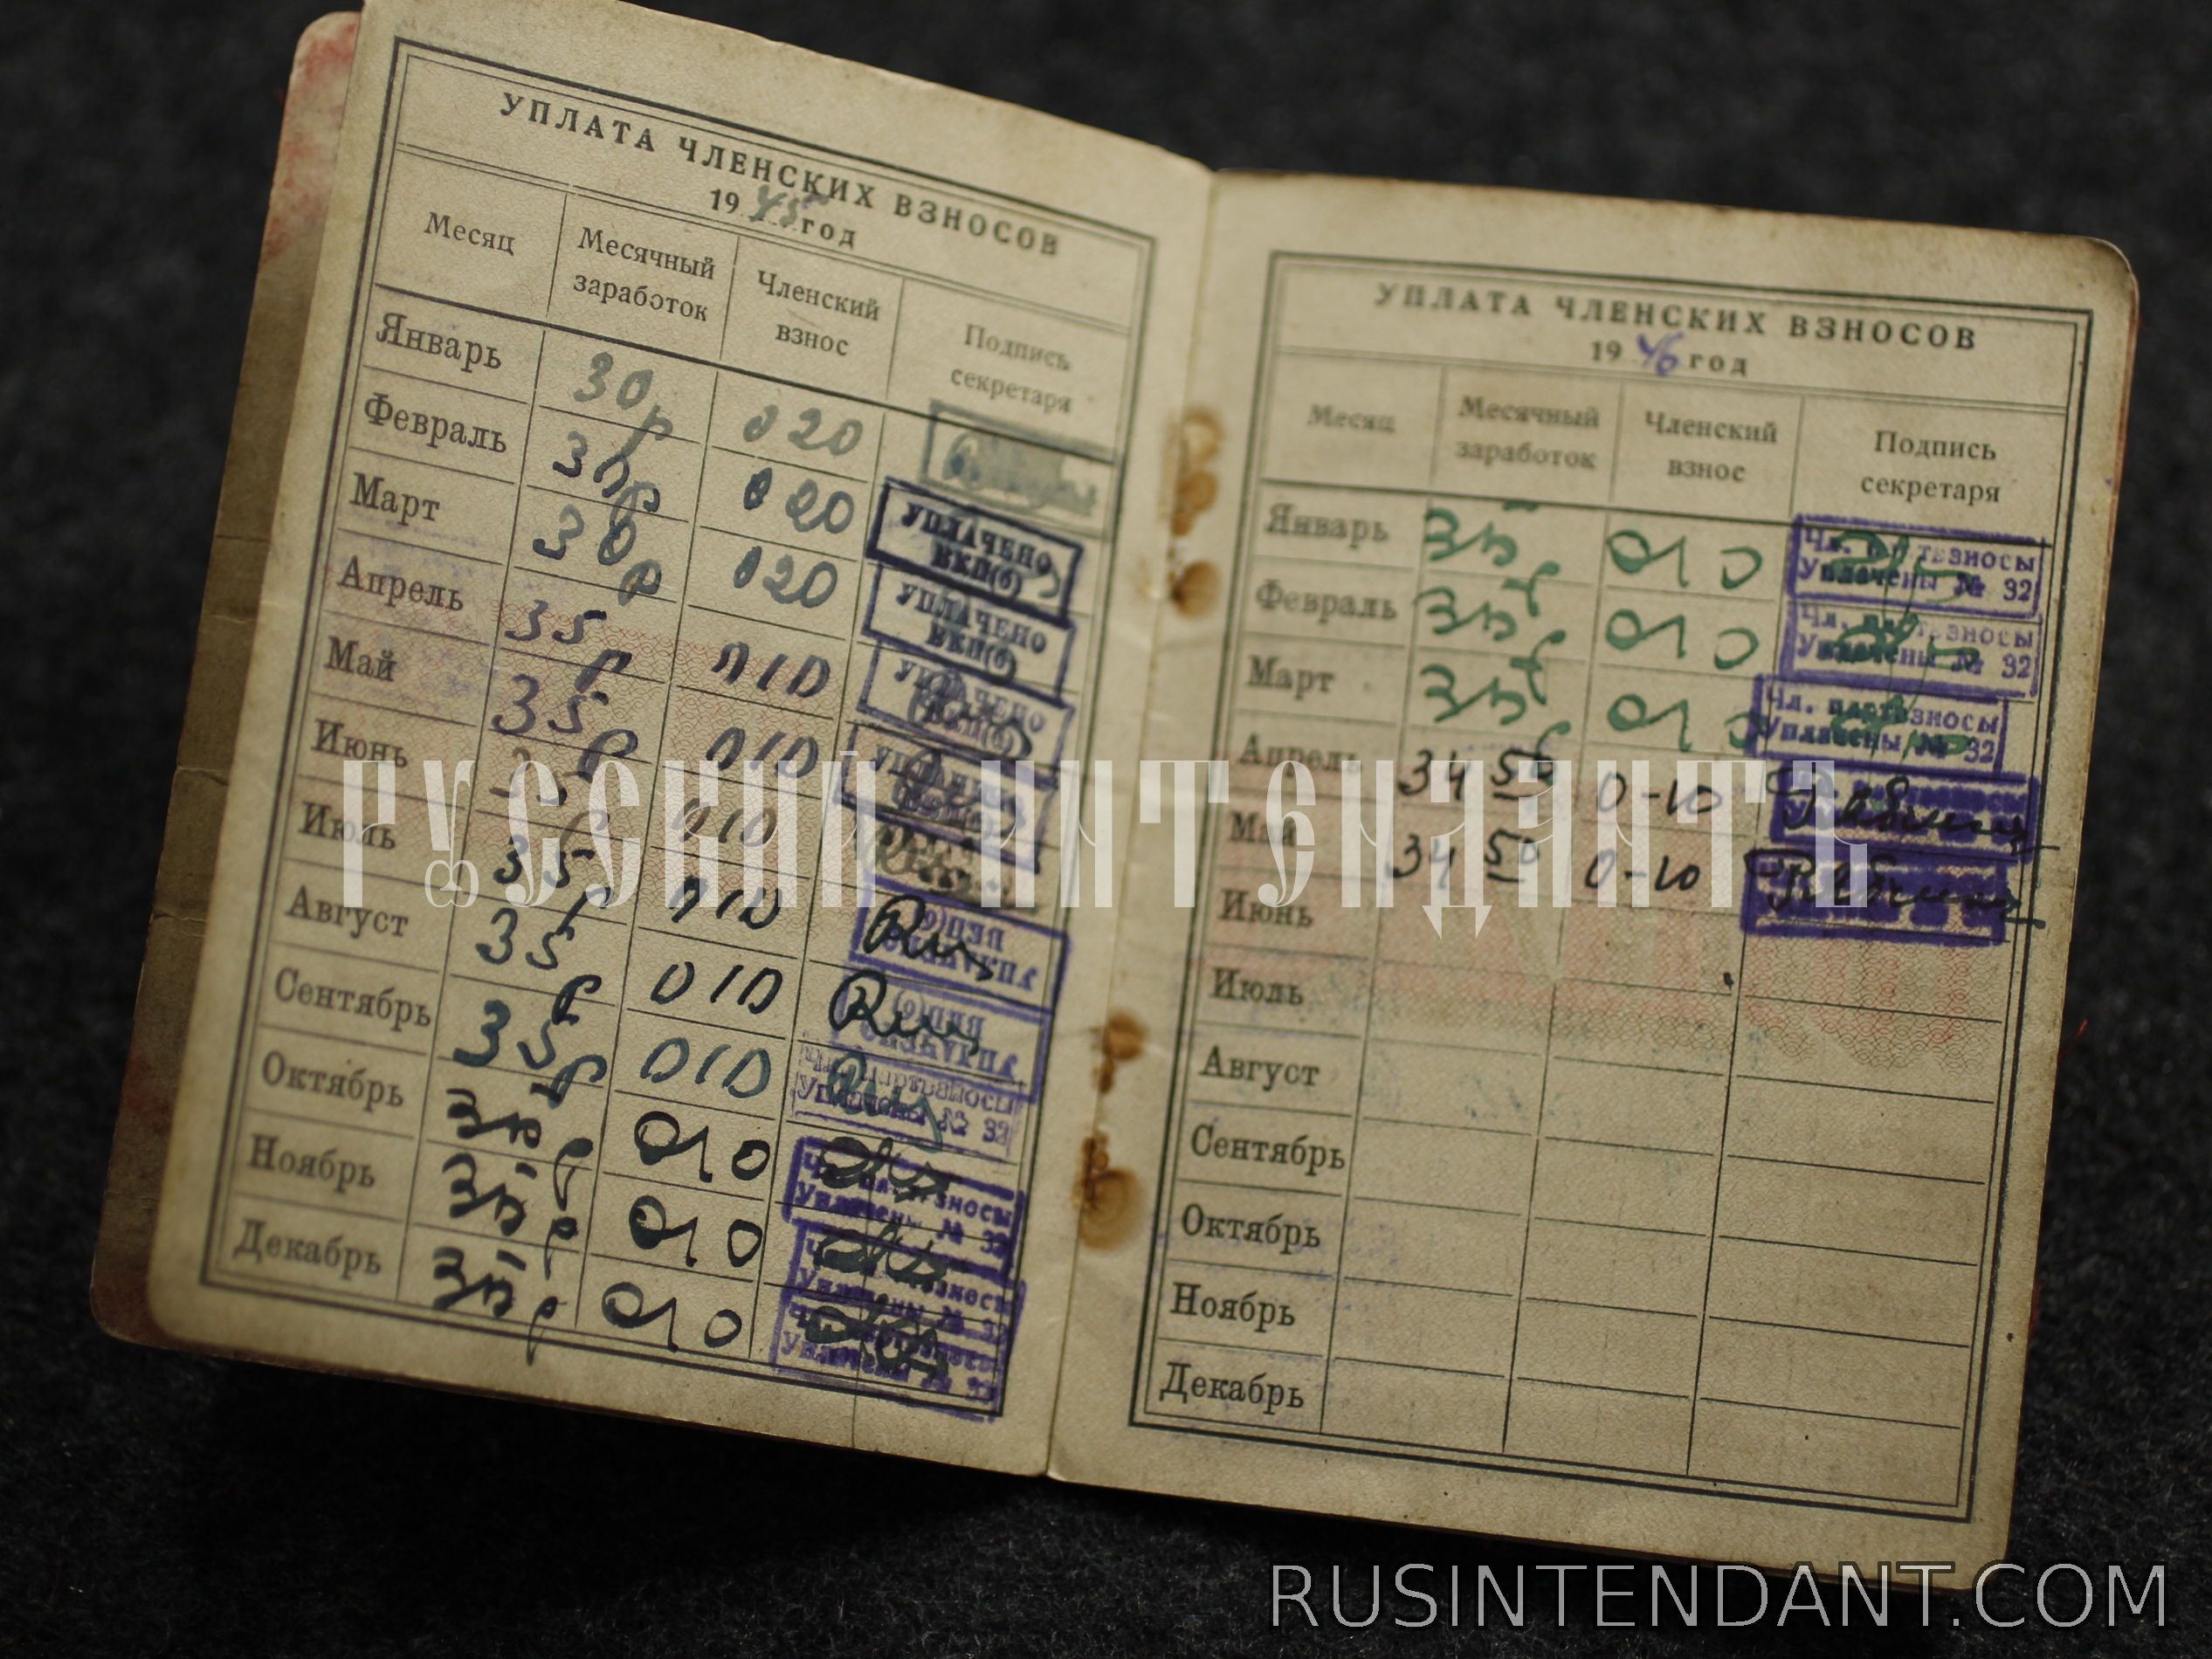 УПЛАТА ЧЛЕНСКИХ ВЗНОСОВ
1945 год
Месяц Месячный заработок Членский взнос Подпись секретаря
Январь 30р 020
Февраль 30р 020 УПЛАЧЕНО ВКП(б)
Март 30р 020 УПЛАЧЕНО ВКП(б)
Апрель 35р 010 УПЛАЧЕНО ВКП(б)
Май 35р 010
Июнь 35р 010
Июль 35р 010
Август 35р 010
Сентябрь 35р 010 Уплачены № 32
Октябрь 35р 010 Уплачены № 32
Ноябрь 35р 010 Уплачены № 32
Декабрь 35р 010
УПЛАТА ЧЛЕНСКИХ ВЗНОСОВ
1946 год
Месяц Месячный заработок Членский взнос Подпись секретаря
Январь 35р 010 Чл. партвзносы Уплачены № 32
Февраль 35р 010 Чл. партвзносы Уплачены № 32
Март 35р 010 Чл. партвзносы Уплачены № 32
Апрель 34 50 0-10
Май 34 50 0-10
Июнь
Июль
Август
Сентябрь
Октябрь
Ноябрь
Декабрь
РУССКИЙ ИНТЕНДАНТЪ
RUSINTENDANT.COM